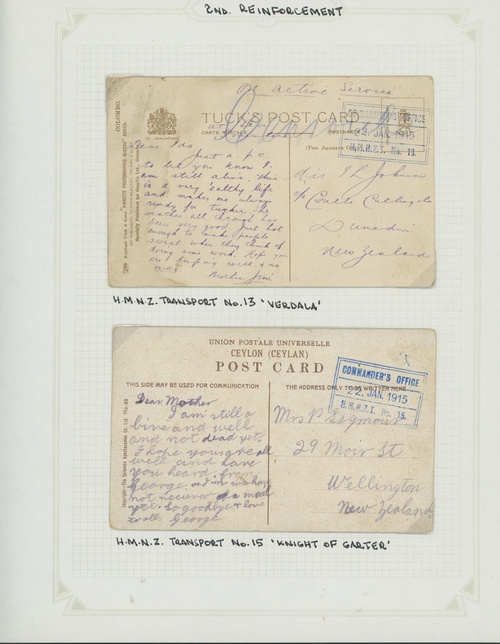 2ND. REINFORCEMENT
On Active Service
COLOMBO.
TUCK'S POST CARD
CARTE POSTALE
22 JAN. 1915
H.M.N.Z.T. No. 13.
Dear Ida
Just a p.c.
to let you know I
am still alive. This
is a very healthy life
and makes me always
ready for tucker. The
weather all through has
been very good. Just hot
enough to make people
sweat when they think of
doing some work. Hope you
are keeping well & no
Brother Jim
Miss I L Johnson
Dunedin
New Zealand
H.M.N.Z. TRANSPORT No.13 'VERDALA'
UNION POSTALE UNIVERSELLE
CEYLON (CEYLAN)
POST CARD
THIS SIDE MAY BE USED FOR COMMUNICATION
THE ADDRESS ONLY TO BE WRITTEN HERE
COMMANDER'S OFFICE
22. JAN. 1915
H.M.N.Z.T. No. 15.
Dear Mother
I am still a
live and well
and not dead yet.
I hope you are all
well and have
you heard from
George. and we have
not received a mail
yet. So goodbye & love
to all. George
Mrs P Seymour
29 Moir St
Wellington
New Zealand
H.M.N.Z. TRANSPORT No.15 'KNIGHT OF GARTER'